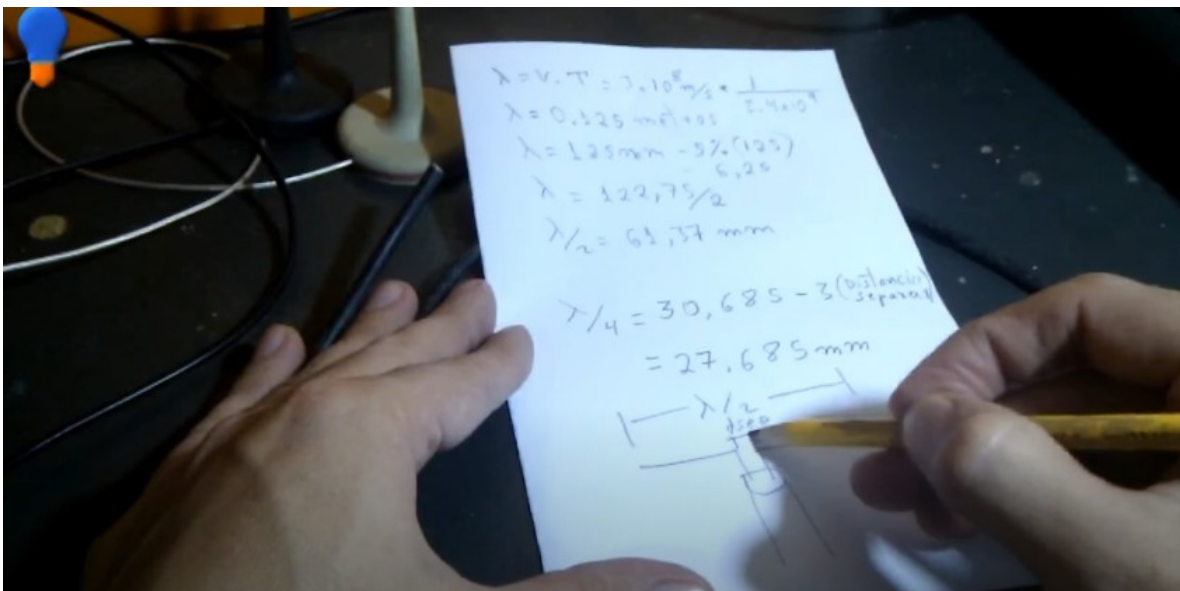 λ = v. T = 3.10⁸ m/s * 1/2.4x10⁹
λ = 0,125 metros
λ = 125mm - 5% (125)
- 6,25
λ = 122,75/2
λ/2 = 61,37 mm
λ/4 = 30,685 - 3 (Distancia
separac
= 27,685 mm
λ/2
dsep